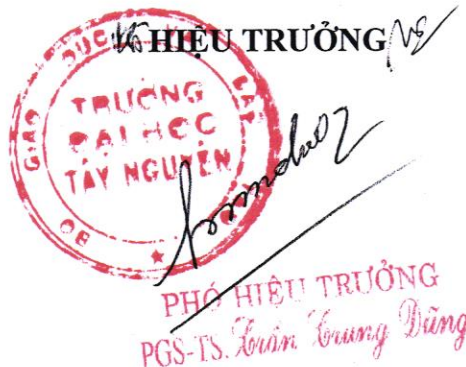 HIỆU TRƯỞNG
BỘ GIÁO DỤC
TRƯỜNG
ĐẠI HỌC
TÂY NGUYÊN
PHÓ HIỆU TRƯỞNG
PGS-TS. Trần Trung Dũng